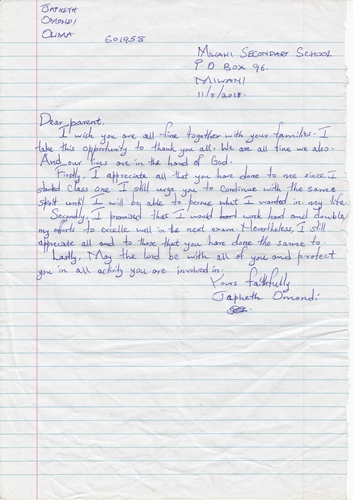 JAPHETH
OMONDI
OLIMA
601958
MIWANI SECONDARY SCHOOL
P O BOX 96.
MIWANI
11/8/2018.
Dear parent.
I wish you are all fine together with your families. I
take this opportunity to thank you all. We are all fine we also.
And our lives are in the hand of God.
Firstly, I appreciate all that you have done to me since I
started Class one. I still urge you to continue with the same
spirit until I will be able to persue what I wanted in my life.
Secondly, I promised that I would work hard and double
my efforts to excelle well in the next exam. Nevertheless, I still
appreciate all and to those that you have done the same to.
Lastly, May the lord be with all of you and protect
you in all activity you are involved in.
Yours faithfully
Japheth Omondi